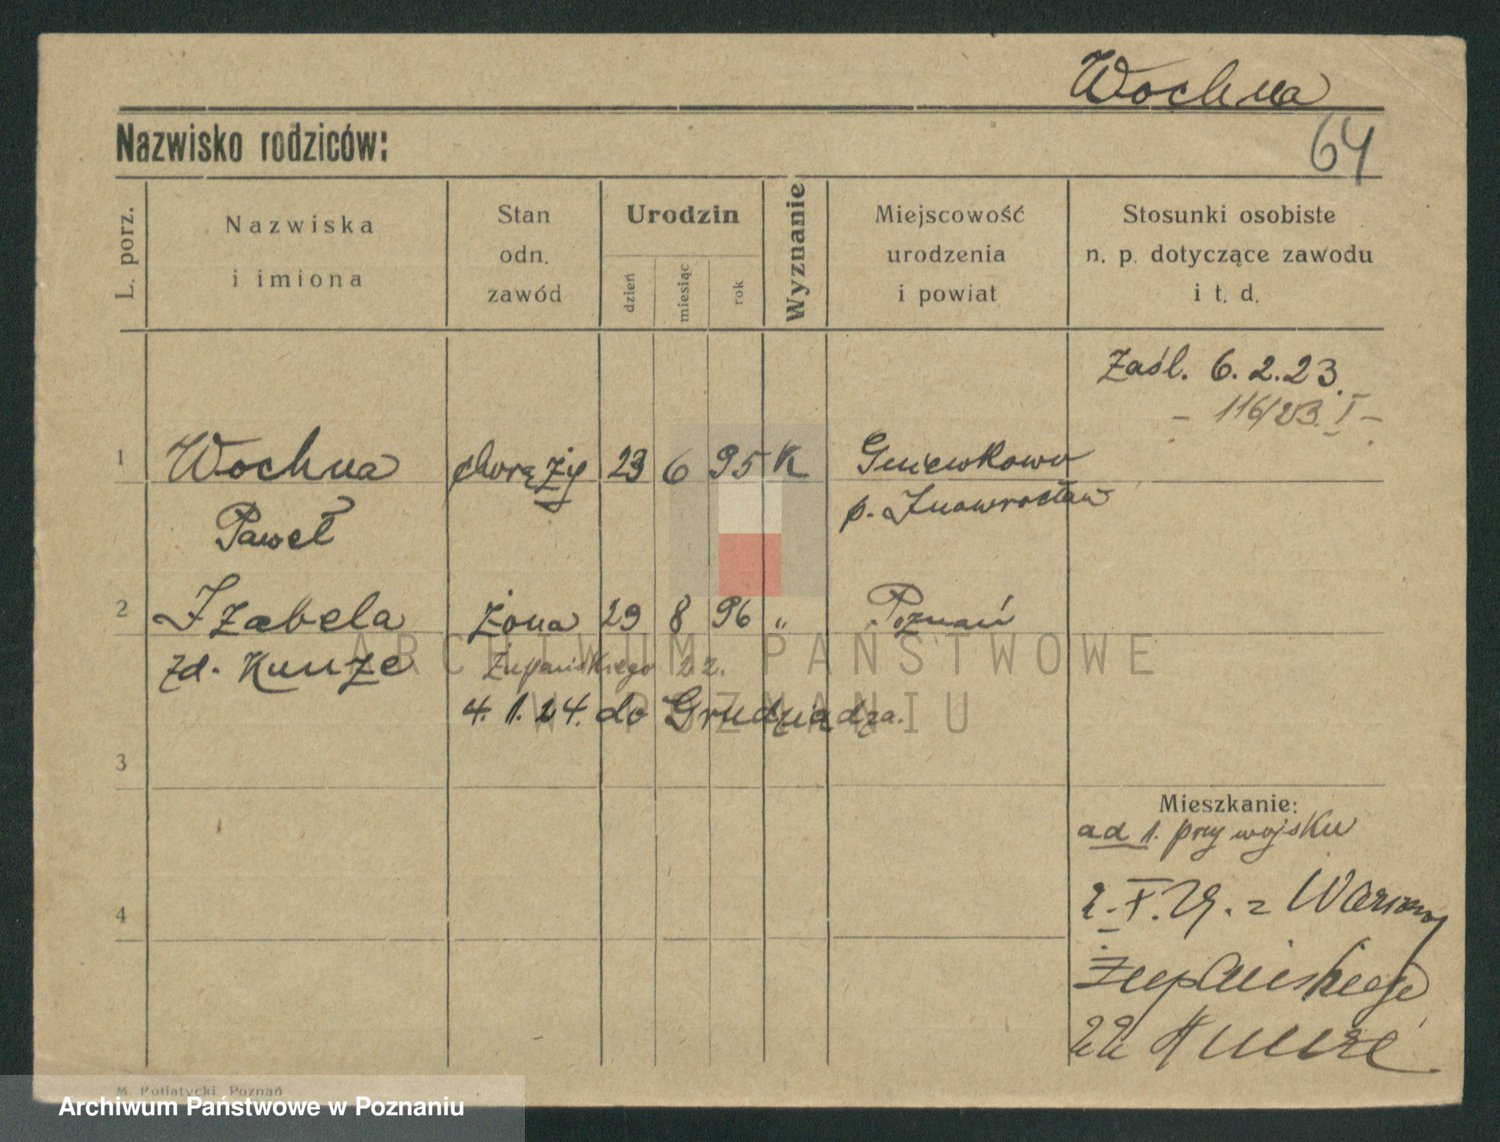 Wochna
64
Nazwisko rodziców:
L. porz.
Nazwiska
i imiona
Stan
odn.
zawód
Urodzin
dzień
miesiąc
rok
Wyznanie
Miejscowość
urodzenia
i powiat
Stosunki osobiste
n. p. dotyczące zawodu
i t. d.
Zaśl. 6.2.23.
- 116/23. I -
1 Wochna chorąży 23 6 95 K Gniewkowo
p. Inowrocław
Paweł
2 Izabela żona 29 8 96 „ Poznań
zd. Kunze Żupańskiego 22.
4.1.24. do Grudziądza.
ARCHIWUM PAŃSTWOWE
W POZNANIU
3
Mieszkanie:
ad 1. przy wojsku
4
2.X.29. z Warszawy
Żupańskiego
22 Kunze
M. Putiatycki, Poznań
Archiwum Państwowe w Poznaniu